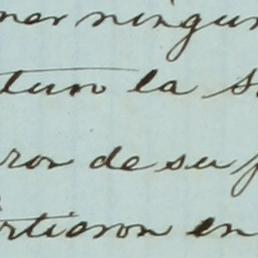 ner ningun
tuvo la s
ror de su p
rtieron en